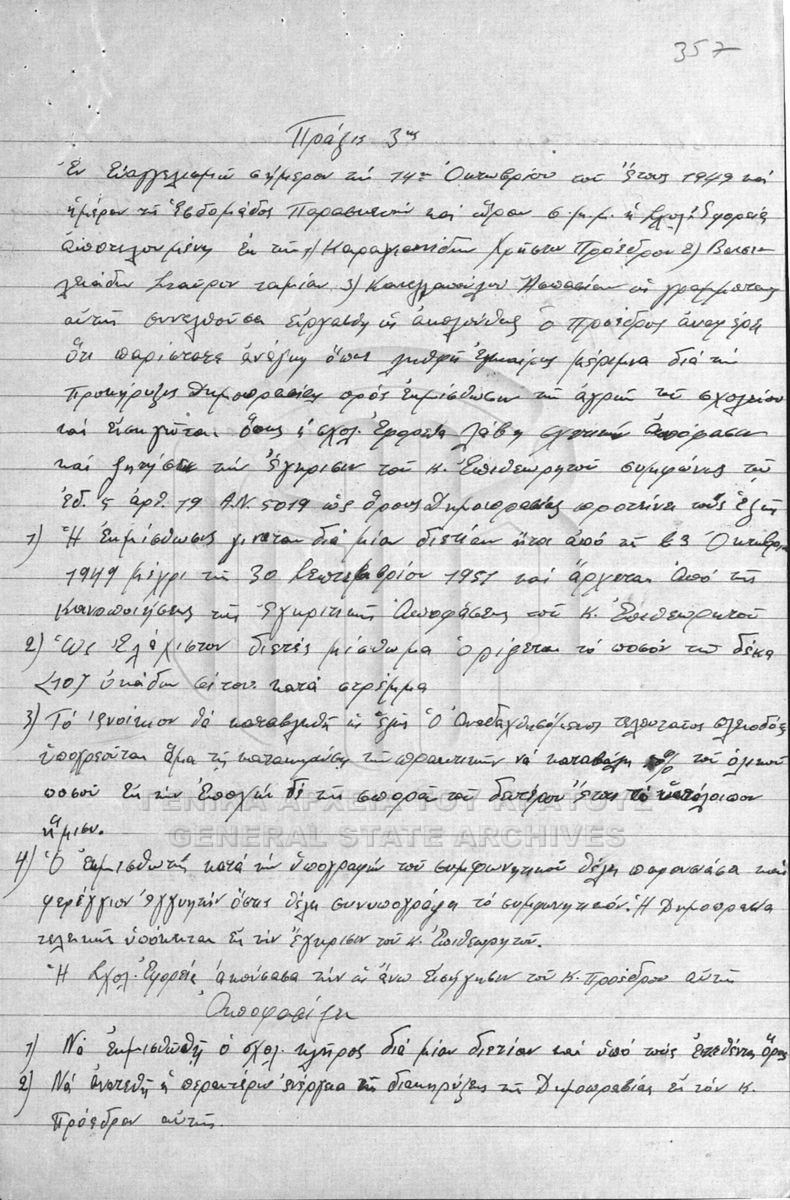 357
Πράξις 3ης
Ἐν Εὐαγγελισμῷ σήμερον τὴν 14ην Ὀκτωβρίου τοῦ ἔτους 1949 καὶ
ἡμέραν τῆς ἑβδομάδος Παρασκευὴν καὶ ὥραν 5 μ.μ. ἡ Σχολ. Ἐφορεία
ἀποτελουμένη ἐκ τῶν 1) Καραγιαννίδην Χρῆστον Πρόεδρον 2) Βασι
λειάδην Σταῦρον ταμίαν 3) Κανελλοπούλου Ἀσπασίαν ὡς γραμματεὺς
αὐτῆς συνελθοῦσα εἰργάσθη ὡς ἀκολούθως ὁ πρόεδρος ἀναφέρει
ὅτι παρίσταται ἀνάγκη ὅπως ληφθῇ ἔγκαιρος μέριμνα διὰ τὴν
προκήρυξιν δημοπρασίαν πρὸς ἐκμίσθωσιν τῆς ἀγροῦ τοῦ σχολείου
καὶ εἰσηγεῖται ὅπως ἡ σχολ. Ἐφορεία λάβῃ σχετικὴν ἀπόφασιν
καὶ ζητήσῃ τὴν ἔγκρισιν τοῦ κ. Ἐπιθεωρητοῦ συμφώνως τῷ
ἐδ. 5 ἀρθ. 19 Α.Ν. 5019 ὡς ὅρους δημοπρασίας προτείνει τοὺς ἑξῆς
1) Ἡ ἐκμίσθωσις γίνεται διὰ μίαν διετίαν ἤτοι ἀπὸ τῆς 23 Ὀκτωβρίου
1949 μέχρι τῆς 30 Σεπτεμβρίου 1951 καὶ ἄρχεται ἀπὸ τῆς
κοινοποιήσεως τῆς ἐγκριτικῆς ἀποφάσεως τοῦ κ. Ἐπιθεωρητοῦ
2) Ὡς ἐλάχιστον διετὲς μίσθωμα ὁρίζεται τὸ ποσὸν τῶν δέκα
(10) ὀκάδων σίτου κατὰ στρέμμα
3) Τὸ ἐνοίκιον θὰ καταβληθῇ ὡς ἑξῆς Ὁ ἀναδειχθησόμενος τελευταῖος πλειοδότης
ὑποχρεοῦται ἅμα τῆς κατακυρώσεως τῶν πρακτικῶν νὰ καταβάλῃ 50% τοῦ ὁλικοῦ
ποσοῦ εἰς τὴν ἐποχὴν δὲ τῆς σπορᾶς τοῦ δευτέρου ἔτους τὸ ὑπόλοιπον
ἥμισυ.
ΓΕΝΙΚΑ ΑΡΧΕΙΑ ΤΟΥ ΚΡΑΤΟΥΣ
GENERAL STATE ARCHIVES
4) Ὁ ἐκμισθωτὴς κατὰ τὴν ὑπογραφὴν τοῦ συμφωνητικοῦ θέλει παρουσιάσει καὶ
φερέγγυον ἐγγυητὴν ὅστις θέλει συνυπογράψει τὸ συμφωνητικόν. Ἡ Δημοπρασία
τελικῶς ὑπόκειται εἰς τὴν ἔγκρισιν τοῦ κ. Ἐπιθεωρητοῦ.
Ἡ Σχολ. Ἐφορεία ἀκούσασα τὴν ὡς ἄνω εἰσήγησιν τοῦ κ. προέδρου αὐτῆς
Ἀποφασίζει
1) Νὰ ἐκμισθωθῇ ὁ σχολ. κλῆρος διὰ μίαν διετίαν καὶ ὑπὸ τοὺς ἐκτεθέντας ὅρους
2) Νὰ ἀνατεθῇ ἡ περαιτέρω ἐνέργεια τῆς διακηρύξεως τῆς Δημοπρασίας εἰς τὸν κ.
πρόεδρον αὐτῆς.